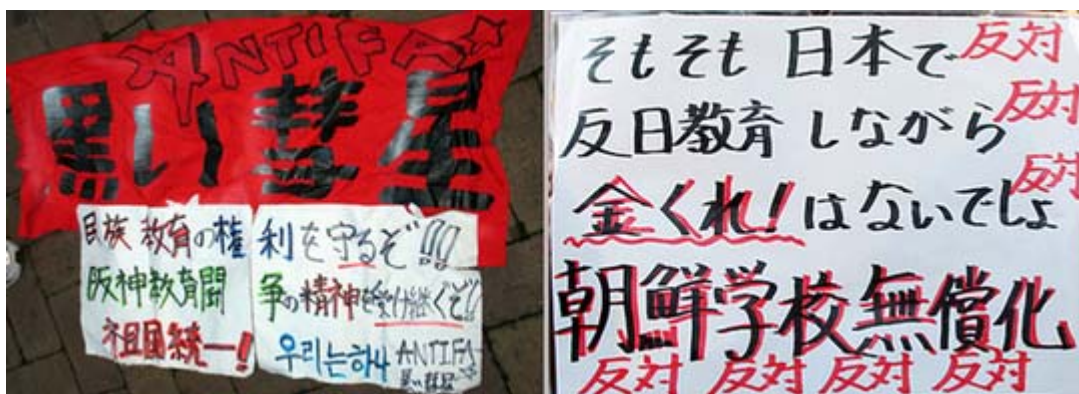 ANTIFA☆
黒い彗星
民族教育の権利を守るぞ!!!
阪神教育闘争の精神を受け継ぐぞ!!
祖国統一!
우리는하나 ANTIFA
黒い彗星
そもそも 日本で 反対
反日教育 しながら 反対
金くれ!はないでしょ 反対
朝鮮学校無償化
反対 反対 反対 反対